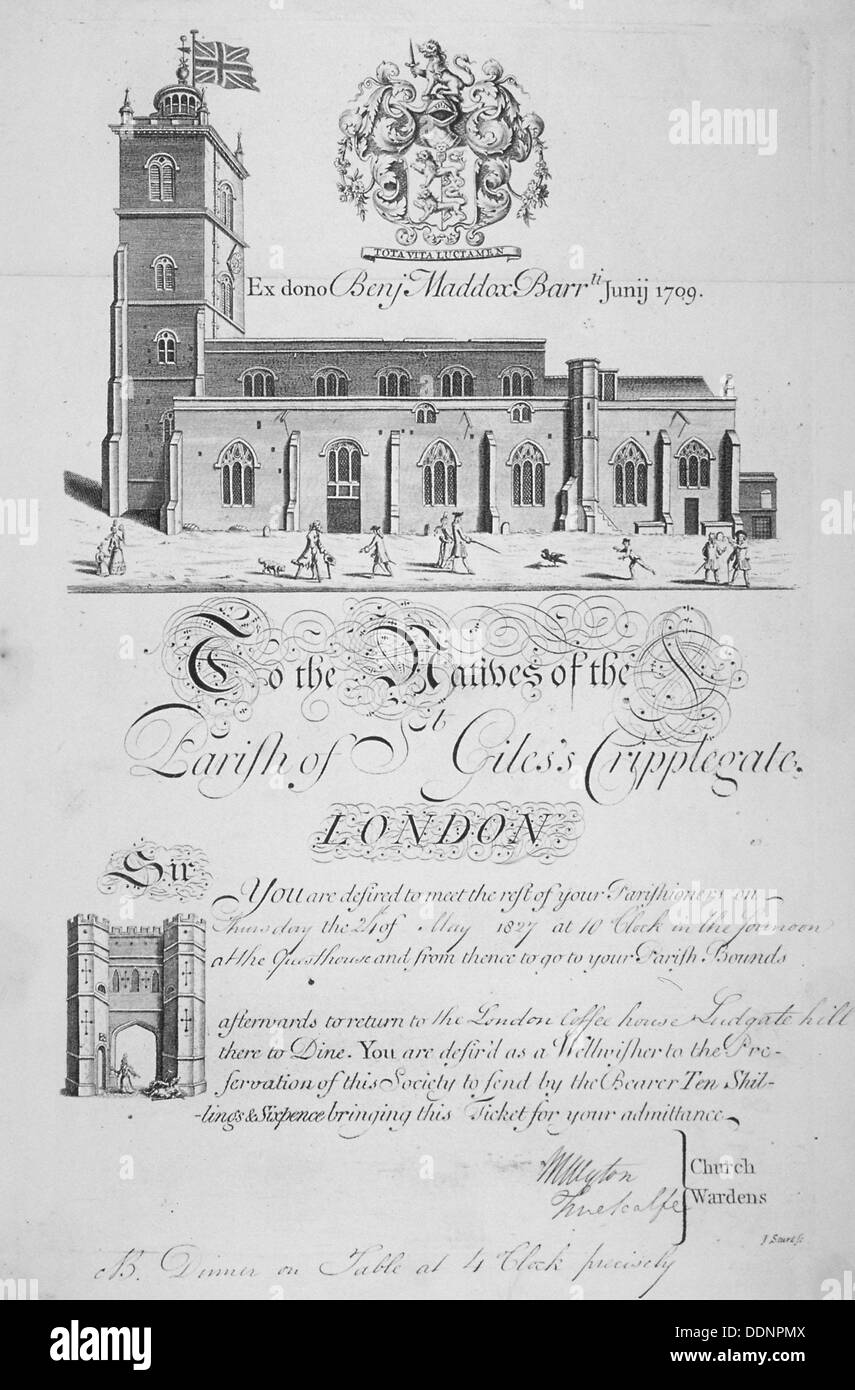 TOTA VITA LUCTAMEN
Ex dono Benj Maddox Barr^ti Junij 1709.
To the Natives of the
Parish of S^t Giles's Cripplegate.
LONDON
Sir
You are desired to meet the rest of your Parishioners on
Thursday the 24 of May 1827 at 10 Clock in the forenoon
at the Questhouse and from thence to go to your Parish Bounds
afterwards to return to the London Coffee house Ludgate hill
there to Dine. You are desir'd as a Wellwisher to the Pre-
servation of this Society to send by the Bearer Ten Shil-
-lings & Sixpence bringing this Ticket for your admittance
Metcalfe
Church
Wardens
J Sturt sc
NB. Dinner on Table at 4 Clock precisely
alamy
Image ID: DDNPMX
www.alamy.com